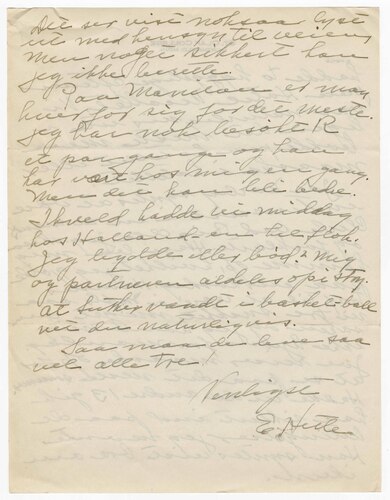 Det ser vist noksaa lyst
ut med hensyn til veien,
men noget sikkert kan
jeg ikke berette.
Paa Manitou er man
hver for sig for det meste.
Jeg har nok besøkt R
et par gange og han
har vært hos mig en gang.
Men det kan bli bedre.
Ikveld hadde vi middag
hos Holland en hel flok.
Jeg lydde eller bød mig
og partneren aldeles op i
at Luther vandt i basketball
vet du naturligvis.
Saa maa du leve saa
vel alle tre!
Venligst
E.